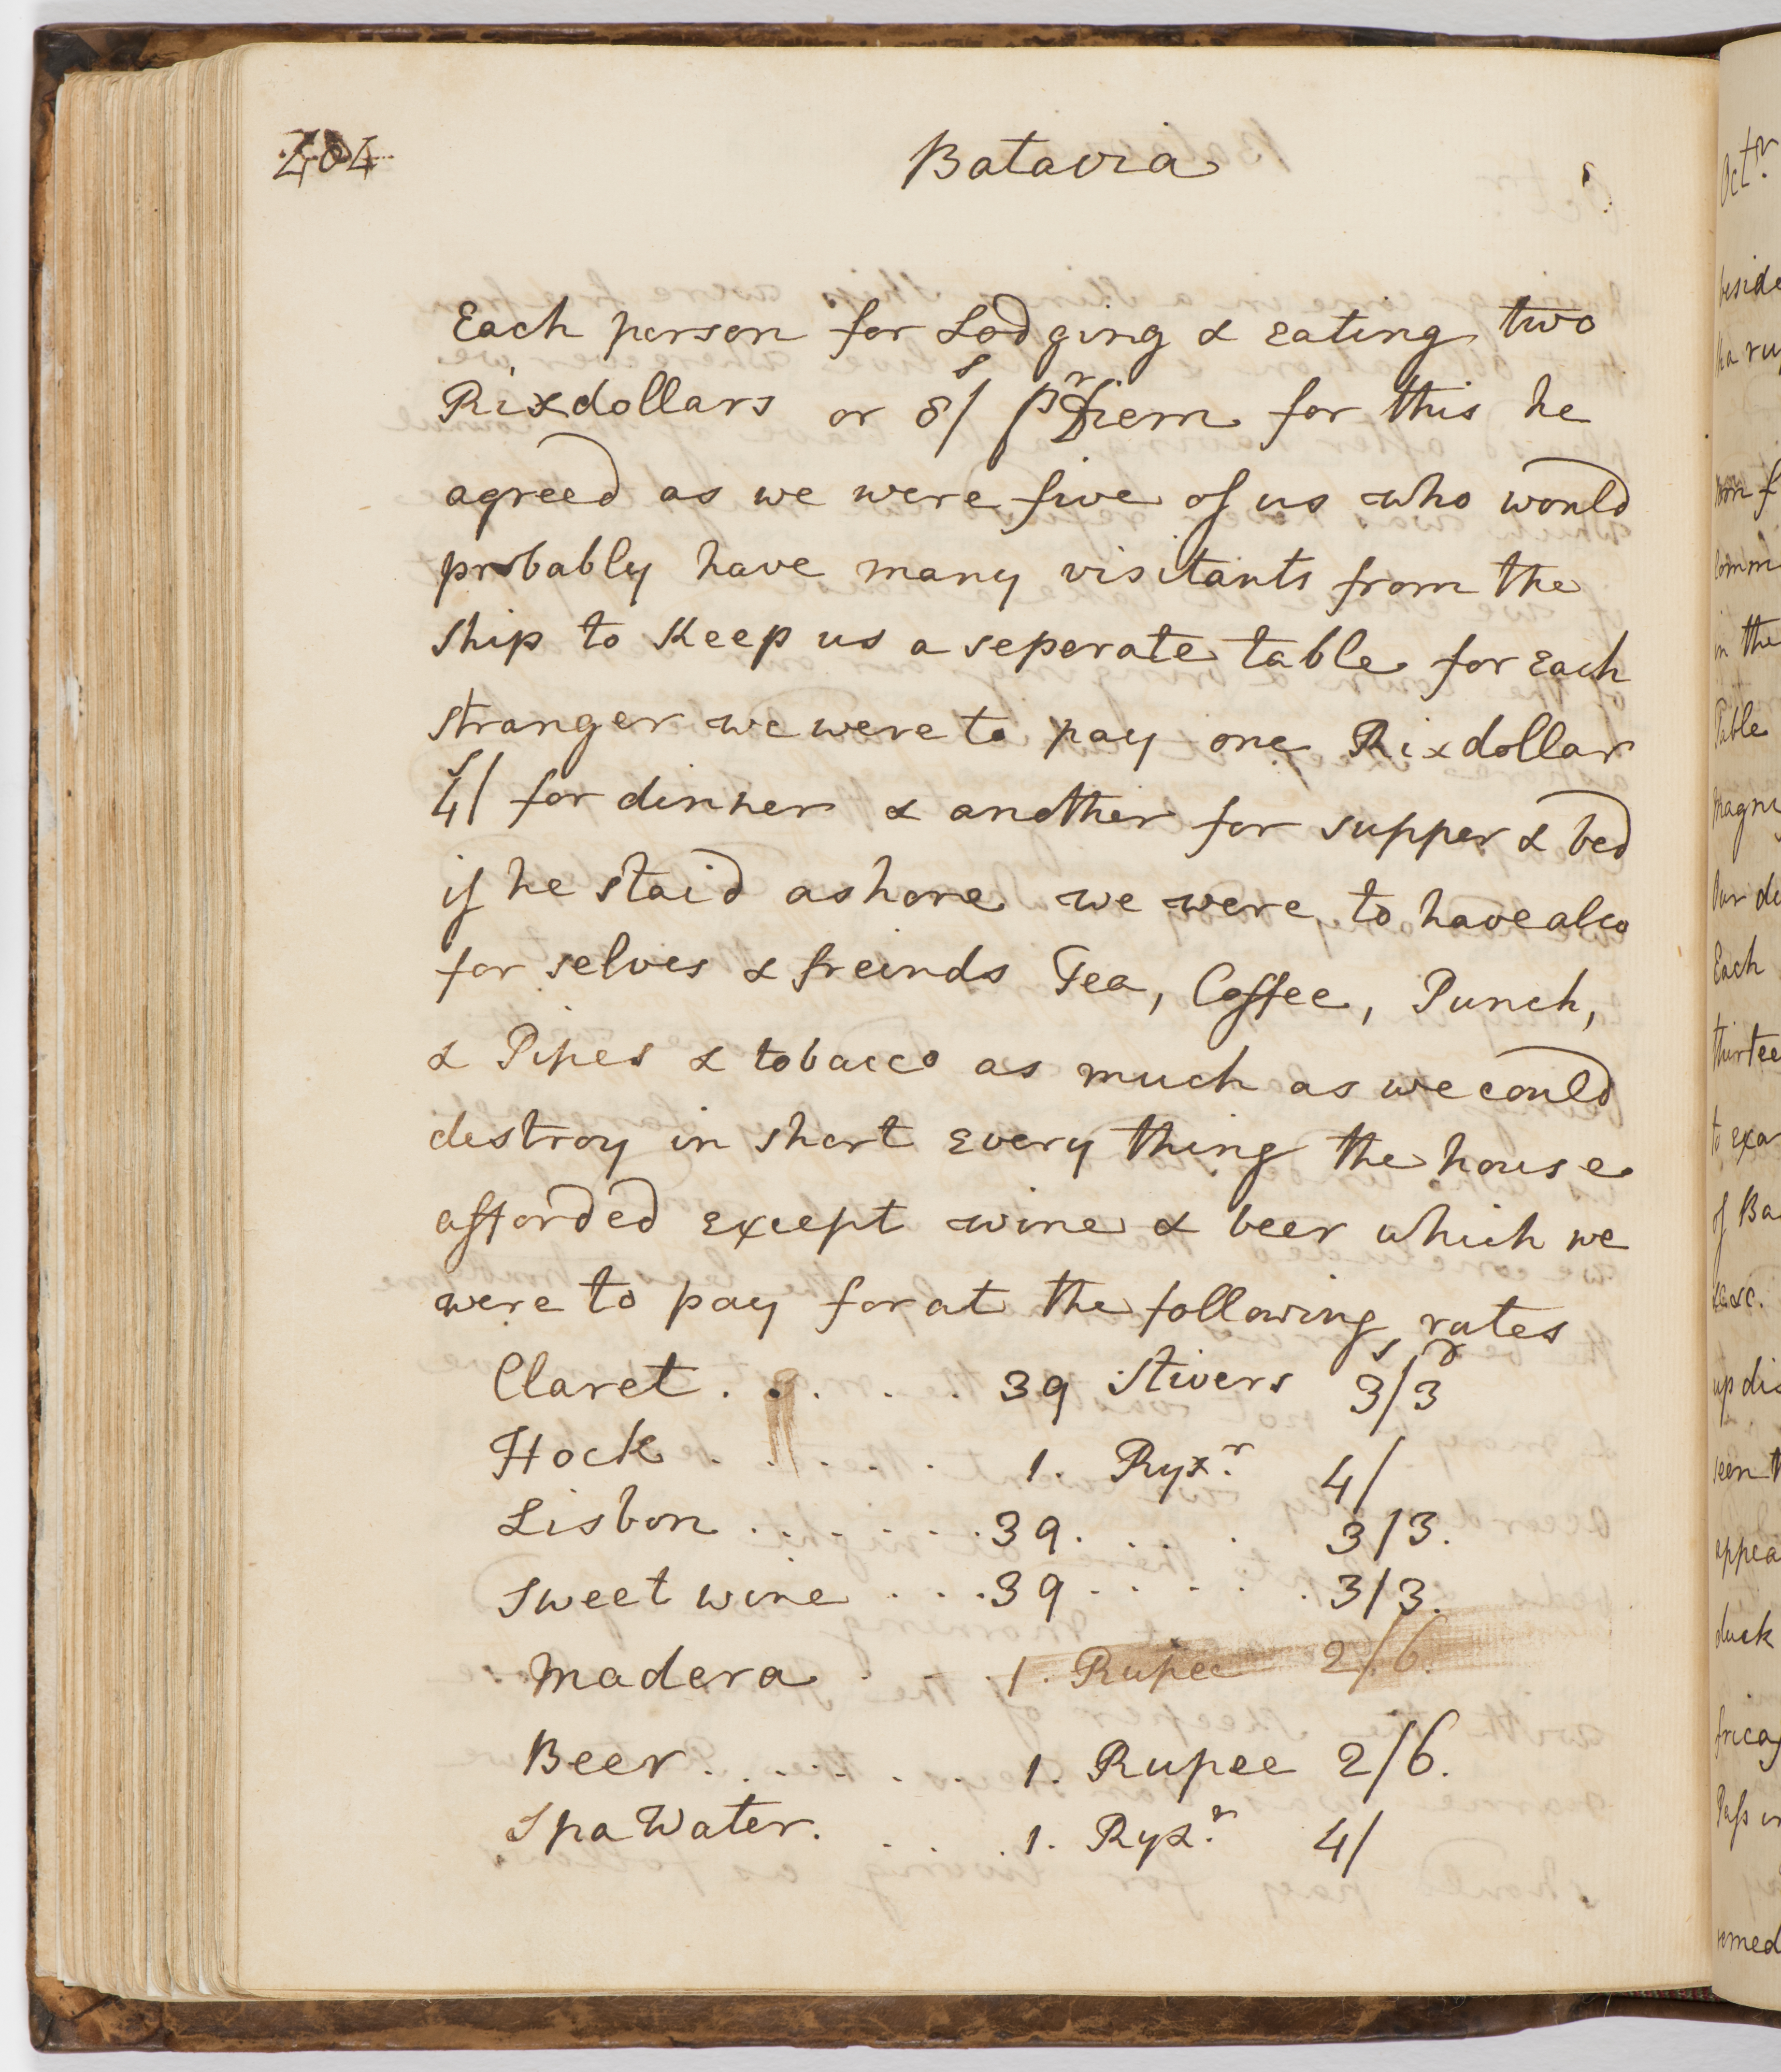 404
Batavia
Each person for Lodging & eating two
Rixdollars or 8/ s pr Diem for this he
agreed as we were five of us who would
probably have many visitants from the
ship to Keep us a seperate table for Each
stranger we were to pay one Rixdollar
4/ s for dinner & another for supper & bed
if he staid ashore we were to have also
for selves & freinds Tea, Coffee, Punch,
& Pipes & tobacco as much as we could
destroy in short Every thing the house
afforded except wine & beer which we
were to pay for at the following rates
Claret . . . . . . 39 Stivers 3s/3d
Hock . . . . . . 1. Ryxr. 4/
Lisbon . . . . . . . 39. . . . . 3/3.
Sweet wine . . . 39 . . . . . 3/3.
Madera . . . 1. Rupee 2/6.
Beer . . . . . . . 1. Rupee 2/6.
Spa Water. . . . 1. Ryxr. 4/
Octr.
beside
in the
Table
Each
to exa
of Ba
up dis
duck